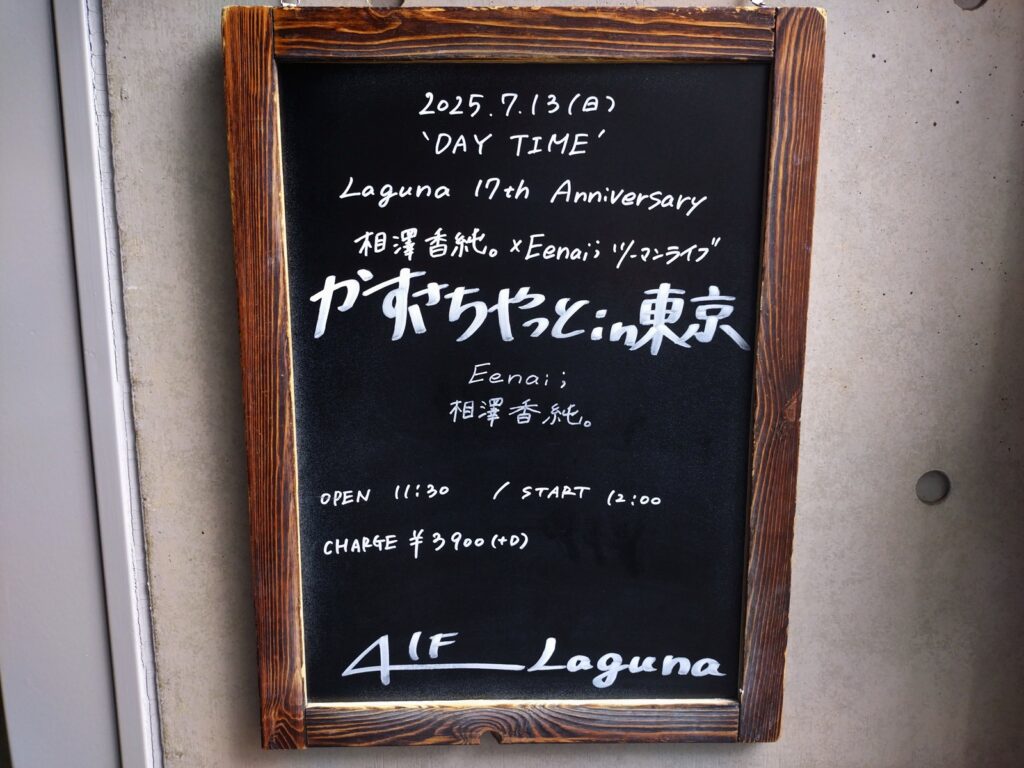 2025.7.13(日)
‵DAY TIME′
Laguna 17th Anniversary
相澤香純。×Eenai; ツーマンライブ
かすさちやっと in 東京
Eenai;
相澤香純。
OPEN 11:30 / START 12:00
CHARGE ¥3900(+D)
1F Laguna